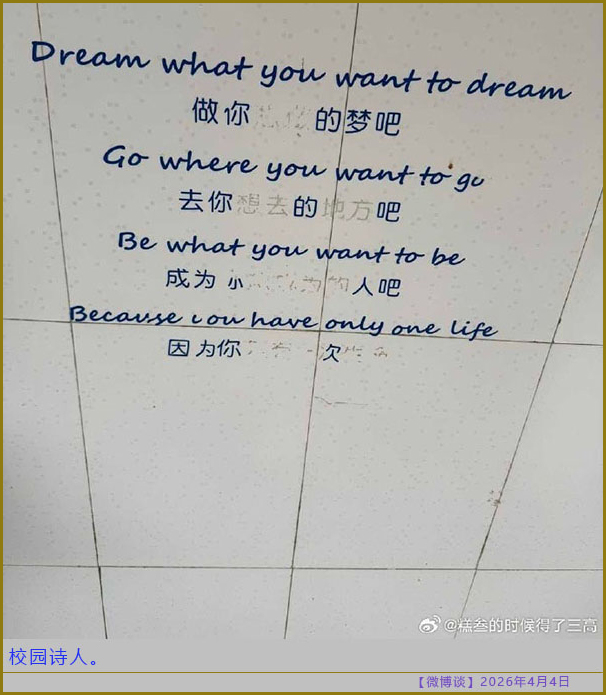 Dream what you want to dream
做你的梦吧
Go where you want to go
去你想去的地方吧
Be what you want to be
成为人吧
Because ou have only one life
因为你
@糕叁的时候得了三高
校园诗人。
【微博谈】2026年4月4日